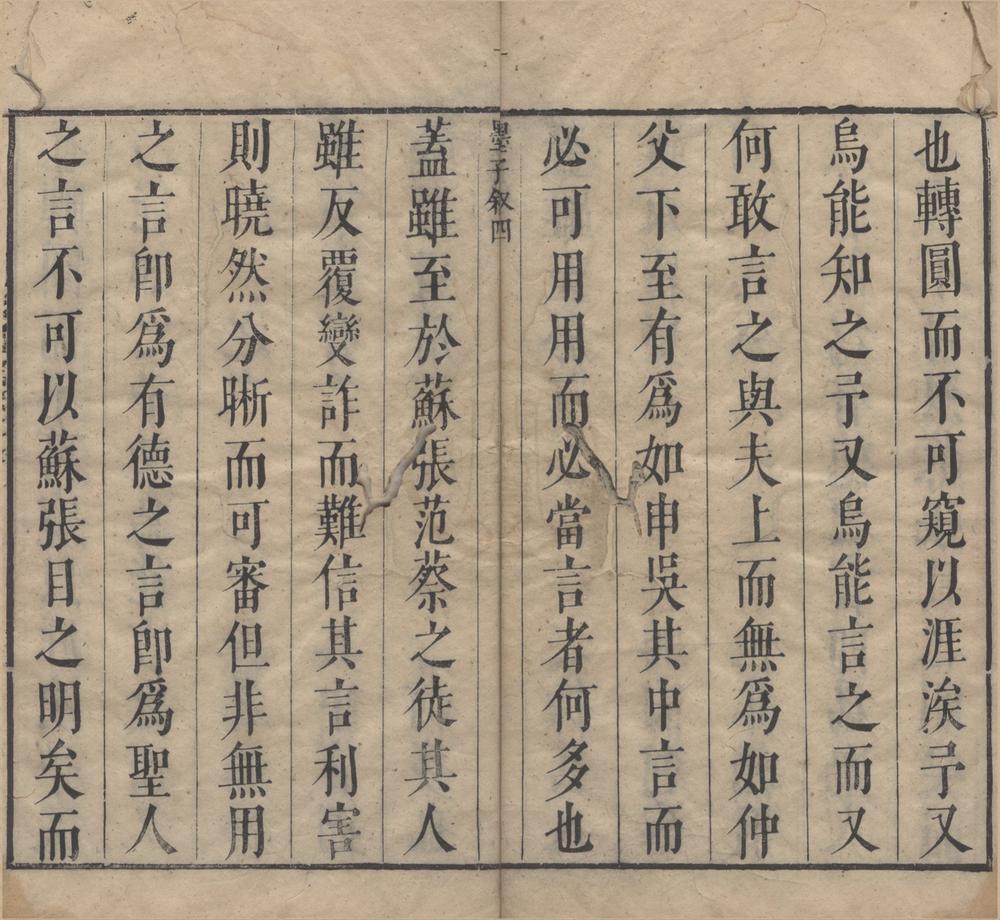 也轉圓而不可窺以涯涘予又
烏能知之予又烏能言之而又
何敢言之與夫上而無爲如仲
父下至有爲如申吳其中言而
必可用用而必當言者何多也
墨子叙四
蓋雖至於蘇張范蔡之徒其人
雖反覆變詐而難信其言利害
則曉然分晰而可審但非無用
之言卽爲有德之言卽爲聖人
之言不可以蘇張目之明矣而